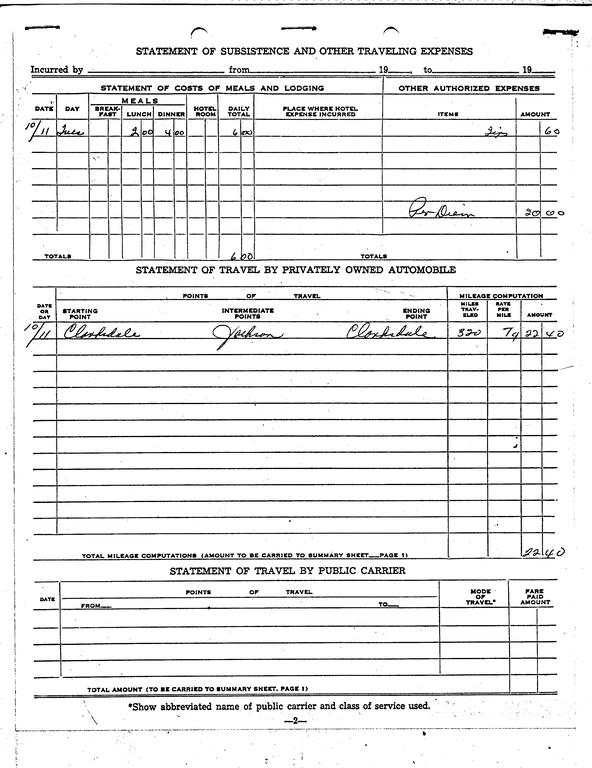 STATEMENT OF SUBSISTENCE AND OTHER TRAVELING EXPENSES
Incurred by from 19 , to 19
STATEMENT OF COSTS OF MEALS AND LODGING OTHER AUTHORIZED EXPENSES
DATE DAY MEALS BREAK-FAST LUNCH DINNER HOTEL ROOM DAILY TOTAL PLACE WHERE HOTEL EXPENSE INCURRED ITEMS AMOUNT
10/11 Tues 2 00 4 00 6 00 Tip 60
Per Diem 20 00
TOTALS 6 00 TOTALS
STATEMENT OF TRAVEL BY PRIVATELY OWNED AUTOMOBILE
POINTS OF TRAVEL MILEAGE COMPUTATION
DATE OR DAY STARTING POINT INTERMEDIATE POINTS ENDING POINT MILES TRAV-ELED RATE PER MILE AMOUNT
10/11 Clarksdale Jackson Clarksdale 320 7¢ 22 40
TOTAL MILEAGE COMPUTATIONS (AMOUNT TO BE CARRIED TO SUMMARY SHEET—PAGE 1) 22 40
STATEMENT OF TRAVEL BY PUBLIC CARRIER
DATE POINTS OF TRAVEL MODE OF TRAVEL* FARE PAID AMOUNT
FROM— TO—
TOTAL AMOUNT (TO BE CARRIED TO SUMMARY SHEET, PAGE 1)
*Show abbreviated name of public carrier and class of service used.
—2—